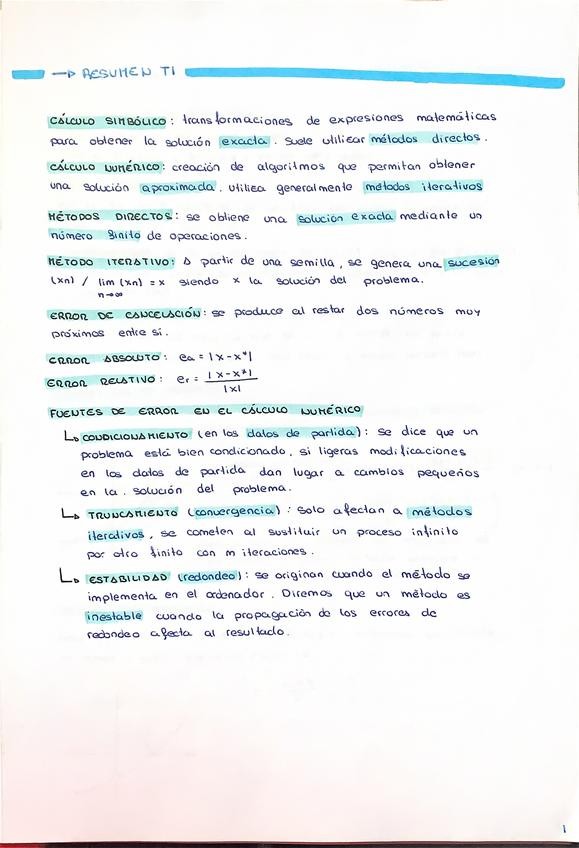 → RESUMEN T1
CÁLCULO SIMBÓLICO: transformaciones de expresiones matemáticas
para obtener la solución exacta. Suele utilizar métodos directos.
CÁLCULO NUMÉRICO: creación de algoritmos que permitan obtener
una solución aproximada. Utiliza generalmente métodos iterativos
MÉTODOS DIRECTOS: se obtiene una solución exacta mediante un
número finito de operaciones.
MÉTODO ITERATIVO: A partir de una semilla, se genera una sucesión
(xn) / lim (xn) = x siendo x la solución del problema.
n→∞
ERROR DE CANCELACIÓN: se produce al restar dos números muy
próximos entre sí.
ERROR ABSOLUTO: ea = |x-x*|
ERROR RELATIVO: er = |x-x*|
|x|
FUENTES DE ERROR EN EL CÁLCULO NUMÉRICO
↳ CONDICIONAMIENTO (en los datos de partida): se dice que un
problema está bien condicionado, si ligeras modificaciones
en los datos de partida dan lugar a cambios pequeños
en la solución del problema.
↳ TRUNCAMIENTO (convergencia): Solo afectan a métodos
iterativos, se cometen al sustituir un proceso infinito
por otro finito con m iteraciones.
↳ ESTABILIDAD (redondeo): se originan cuando el método se
implementa en el ordenador. Diremos que un método es
inestable cuando la propagación de los errores de
redondeo afecta al resultado.
1